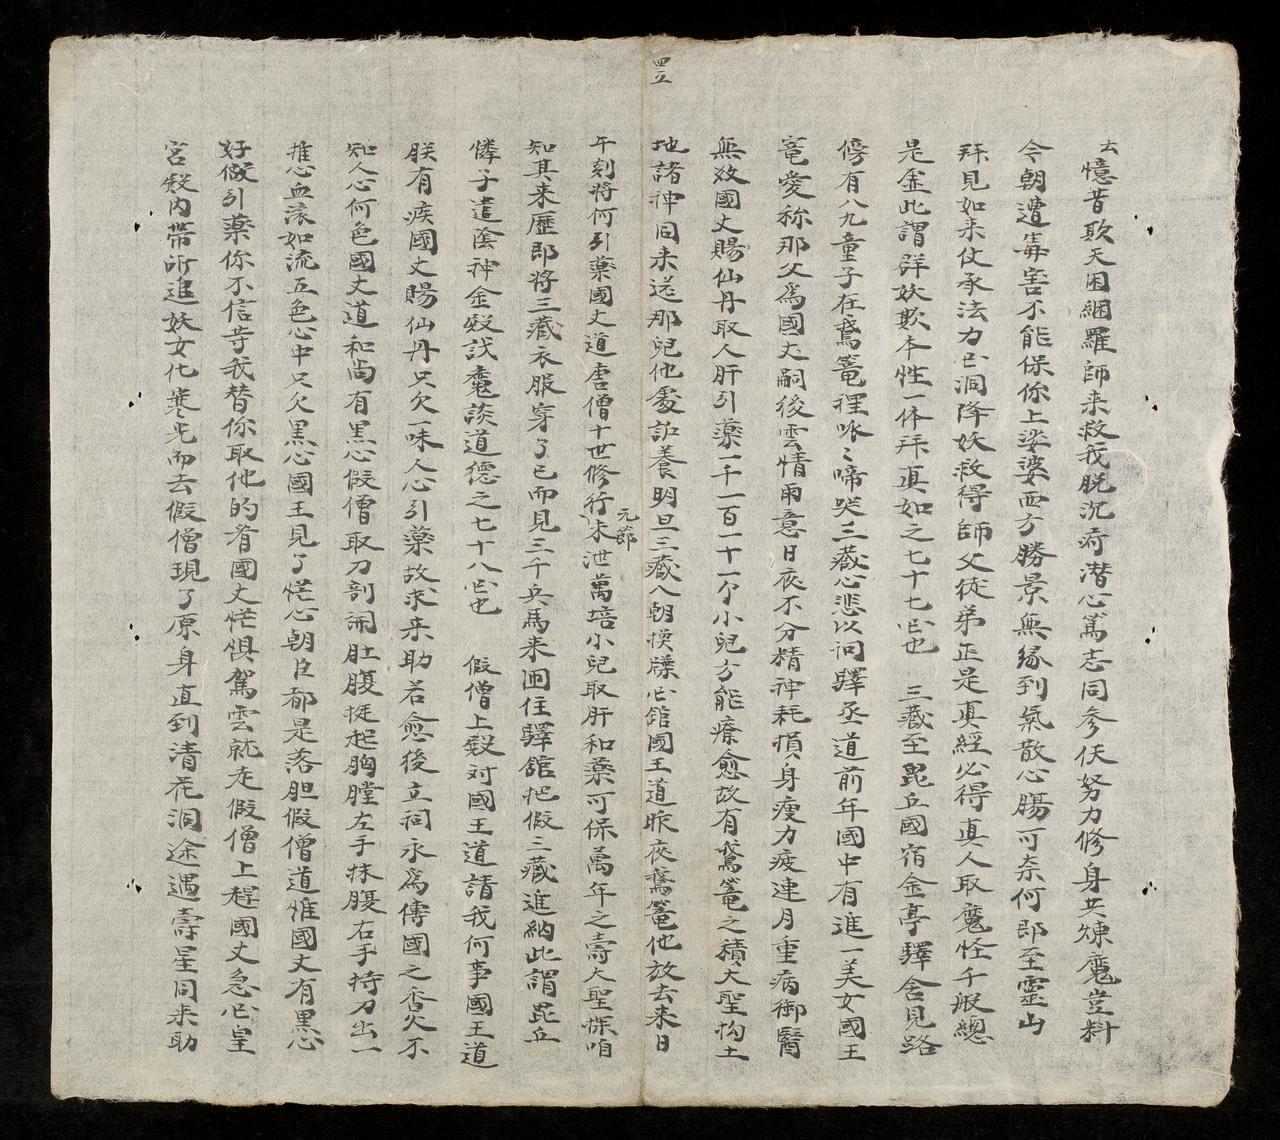 四五
云憶昔欺天困網羅師来救我脱沉疴潜心篤志同參伏努力修身共煉魔豈料
今朝遭毒害不能保你上娑婆西方勝景無緣到氣散心腸可奈何即至靈山
拜見如来仗承法力出洞降妖救得師父徒弟正是真經必得真人取魔怪千般總
是金此謂群妖欺本性一体拜真如之七十七出也 三藏至毘丘國宿金亭驛舍見路
傍有八九童子在鵞篭裡咻〻啼哭三藏心悲以问驛丞道前年國中有進一美女國王
寵愛称那父爲國丈嗣後雲情雨意日夜不分精神耗損身瘦力疲連月重病御醫
無效國丈賜仙丹取人肝引藥一千一百一十一个小兒方能療愈故有鵞篭之積大聖拘土
地諸神囙来送那兒他處訨養明旦三藏入朝換牒出舘國王道昨夜鵞篭他放去来日
午刻将何引藥國丈道唐僧十世修行未泄萬培小兒取肝和藥可保萬年之壽大聖探咱
元節
知其来歷即将三藏衣服穿了已而見三千兵馬来囲住驛舘把假三藏進納此謂毘丘
憐子遣陰神金殿識魔談道德之七十八出也 假僧上殿对國王道請我何事國王道
朕有疾國丈賜仙丹只欠一味人心引藥故求来助若愈後立祠永爲傳國之香火不
知人心何色國丈道和尚有黒心假僧取刀剖開肚腹挺起胸膛左手抹腹右手持刀出一
堆心血滚如流五色心中只欠黒心國王見了恾心朝臣都是落胆假僧道惟國丈有黒心
好做引藥你不信等我替你取他的肴國丈恾惧駕雲就走假僧上趕國丈急出皇
宮殿内帶所進妖女化寒光而去假僧現了原身直到清花洞途遇壽星同来助